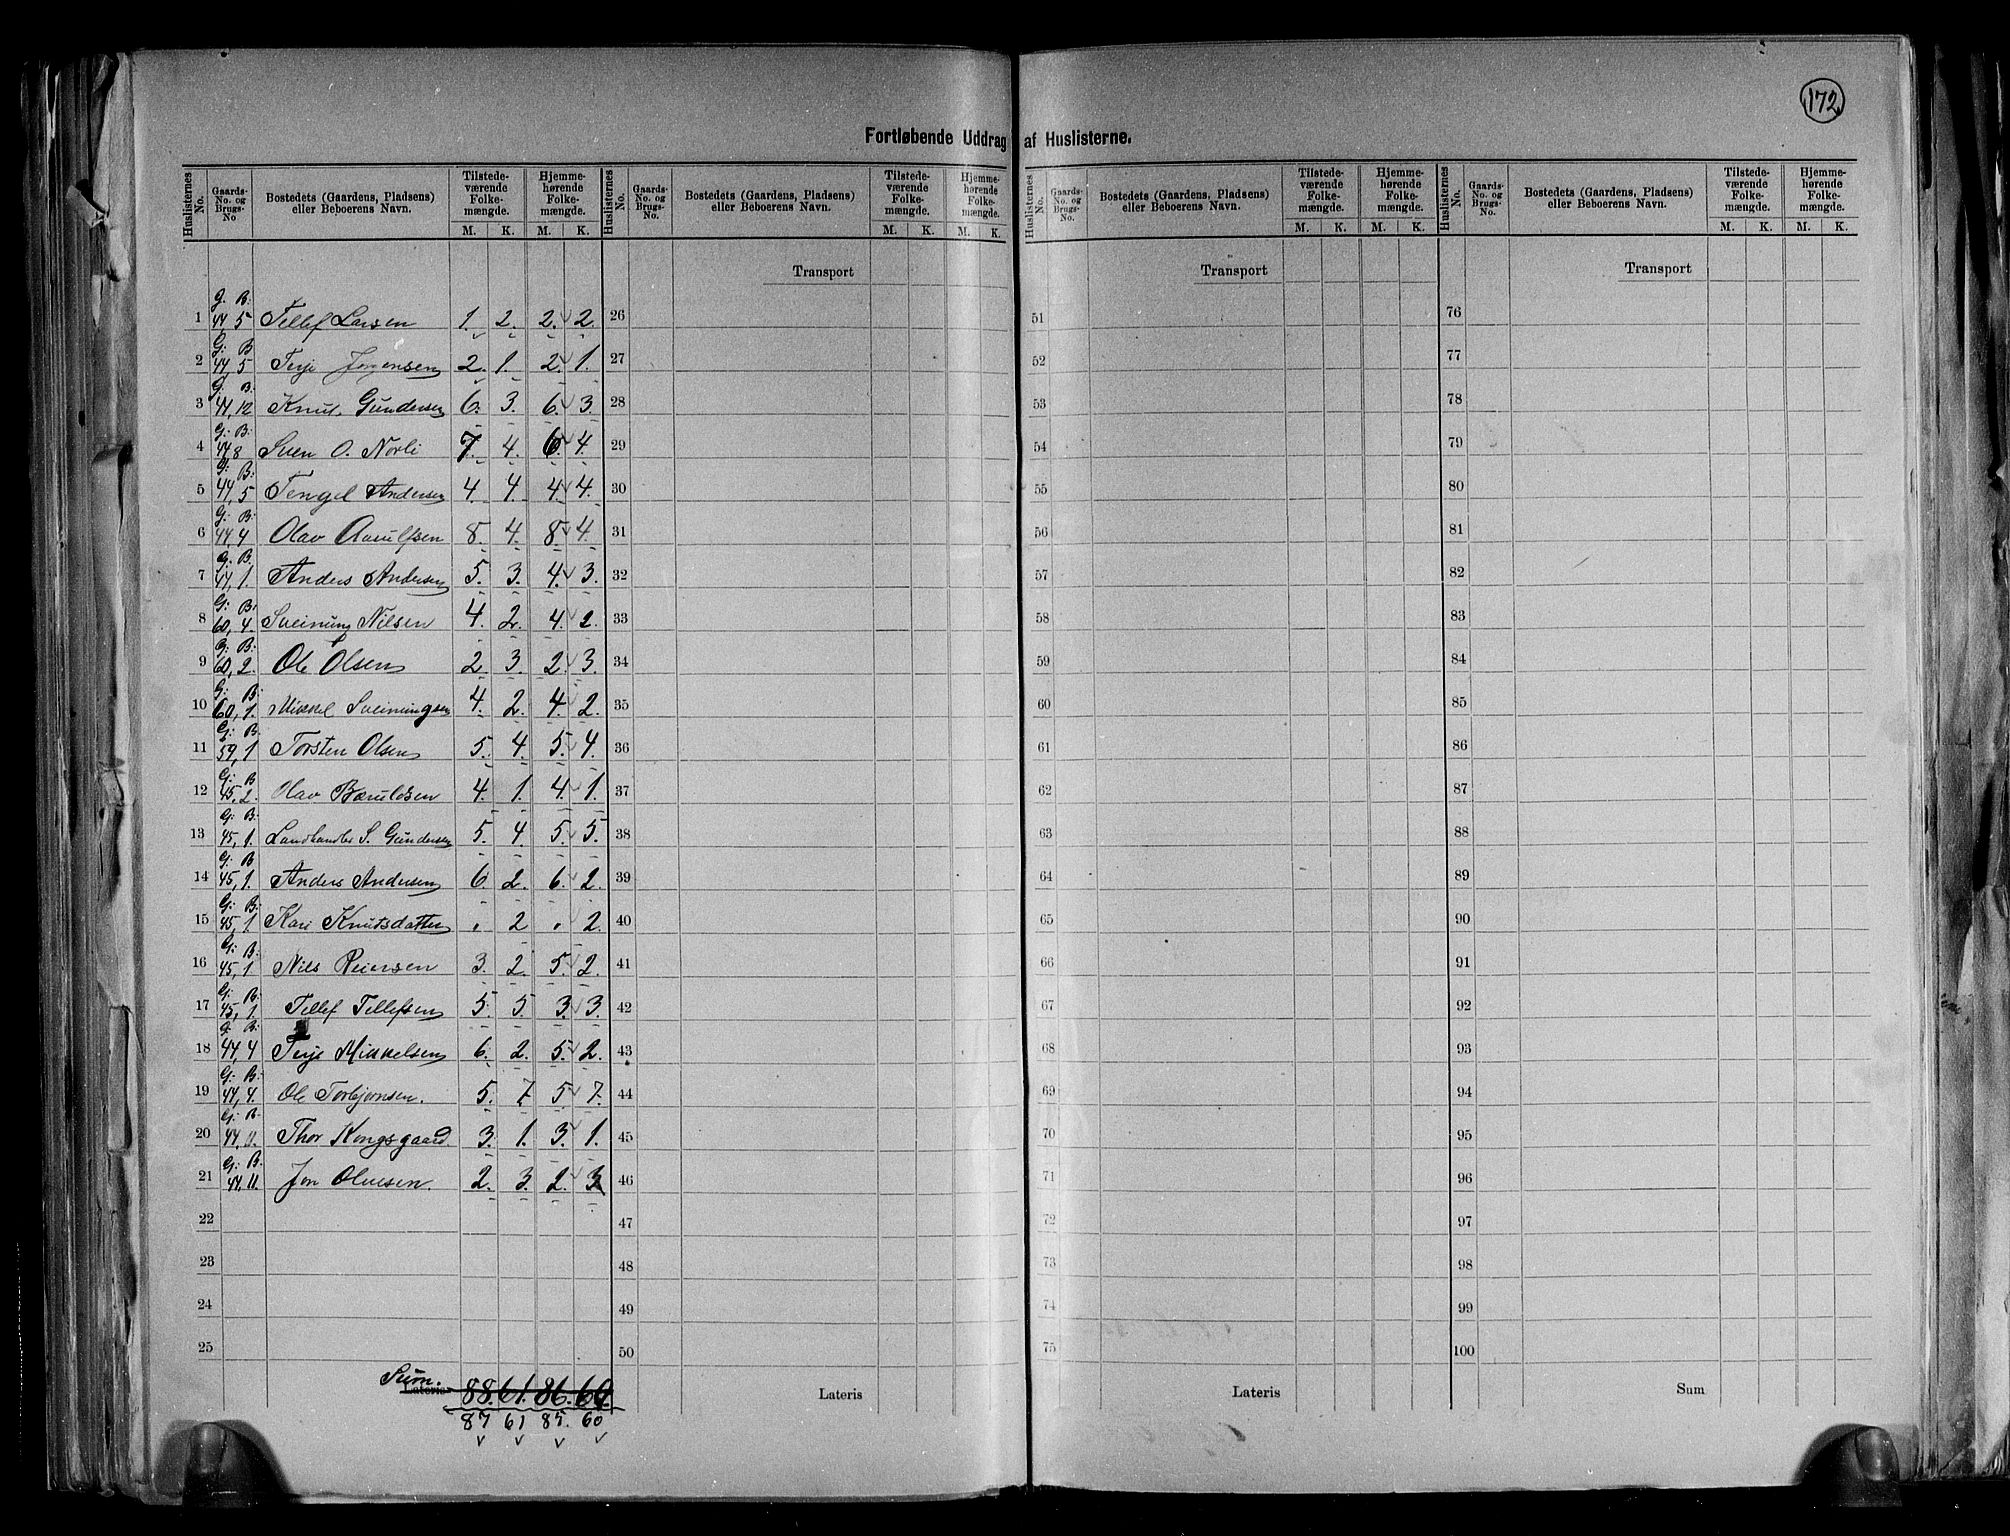 172
Fortløbende Uddrag af Huslisterne.
Huslisternes No. Gaards-No. og Brugs-No Bostedets (Gaardens, Pladsens) eller Beboerens Navn. Tilstede-værende Folke-mængde. Hjemme-hørende Folke-mængde. Huslisternes No. Gaards-No. og Brugs-No. Bostedets (Gaardens, Pladsens) eller Beboerens Navn. Tilstede-værende Folke-mængde. Hjemme-hørende Folke-mængde. Huslisternes No. Gaards-No. og Brugs-No. Bostedets (Gaardens, Pladsens) eller Beboerens Navn. Tilstede-værende Folke-mængde. Hjemme-hørende Folke-mængde. Huslisternes No. Gaards-No. og Brugs-No. Bostedets (Gaardens, Pladsens) eller Beboerens Navn. Tilstede-værende Folke-mængde. Hjemme-hørende Folke-mængde.
M. K. M. K. M. K. M. K. M. K. M. K. M. K. M. K.
Transport Transport Transport
G. B:
1 44, 5 Tellef Larsen 1. 2. 2. 2. 26 51 76
G: B
2 44, 5 Terje Jørgensen 2. 1. 2. 1. 27 52 77
G: B:
3 44, 12 Knut Gundersen 6. 3. 6. 3. 28 53 78
G: B:
4 44, 8 Sven O. Norli 7. 4. 6. 4. 29 54 79
G: B:
5 44, 5 Tengel Andersen 4. 4. 4. 4. 30 55 80
G: B:
6 44, 4 Olav Aanulfsen 8. 4. 8. 4. 31 56 81
G. B.
7 44, 1. Anders Andersen 5. 3. 4. 3. 32 57 82
G: B:
8 60, 4. Sveinung Nilsen 4. 2. 4. 2. 33 58 83
G: B:
9 60, 2. Ole Olsen 2. 3. 2. 3. 34 59 84
G: B:
10 60, 1. Mikkel Sveinungsen 4. 2. 4. 2. 35 60 85
G: B.
11 59, 1 Torsten Olsen 5. 4. 5. 4. 36 61 86
G: B
12 45, 2. Olav Bærulfsen 4. 1. 4. 1. 37 62 87
G: B:
13 45, 1. Landhandler S. Gundersen 5. 4. 5. 5. 38 63 88
G: B
14 45, 1. Anders Andersen 6. 2. 6. 2. 39 64 89
G: B:
15 45, 1 Kari Knutsdatter „ 2 „ 2. 40 65 90
G: B:
16 45, 1 Nils Reiersen 3. 2. 5. 2. 41 66 91
G: B:
17 45, 1. Tellef Tellefsen 5. 5. 3. 3. 42 67 92
G: B:
18 44, 4 Terje Mikkelsen 6. 2. 5. 2. 43 68 93
G: B:
19 44, 4. Ole Torbjørnsen. 5. 7. 5. 7. 44 69 94
G: B.
20 44, 11. Thor Kongsgaard. 3. 1. 3. 1. 45 70 95
G: B.
21 44, 11. Jon Olvesen. 2. 3. 2. 3 46 71 96
22 47 72 97
23 48 73 98
24 49 74 99
25 50 75 100
Sum.
Lateris 88. 61. 86. 60. Lateris Lateris Sum
87 61 85. 60